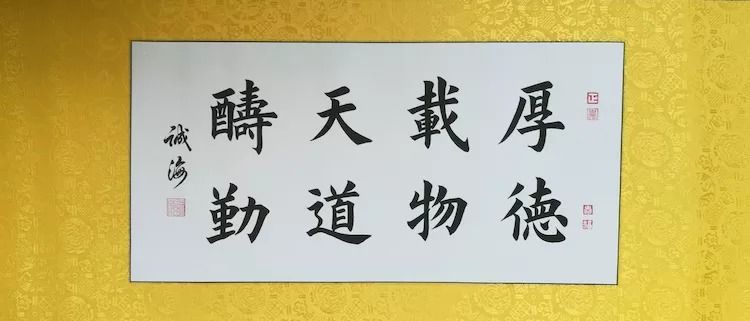 厚德
載物
天道
醻勤
誠海